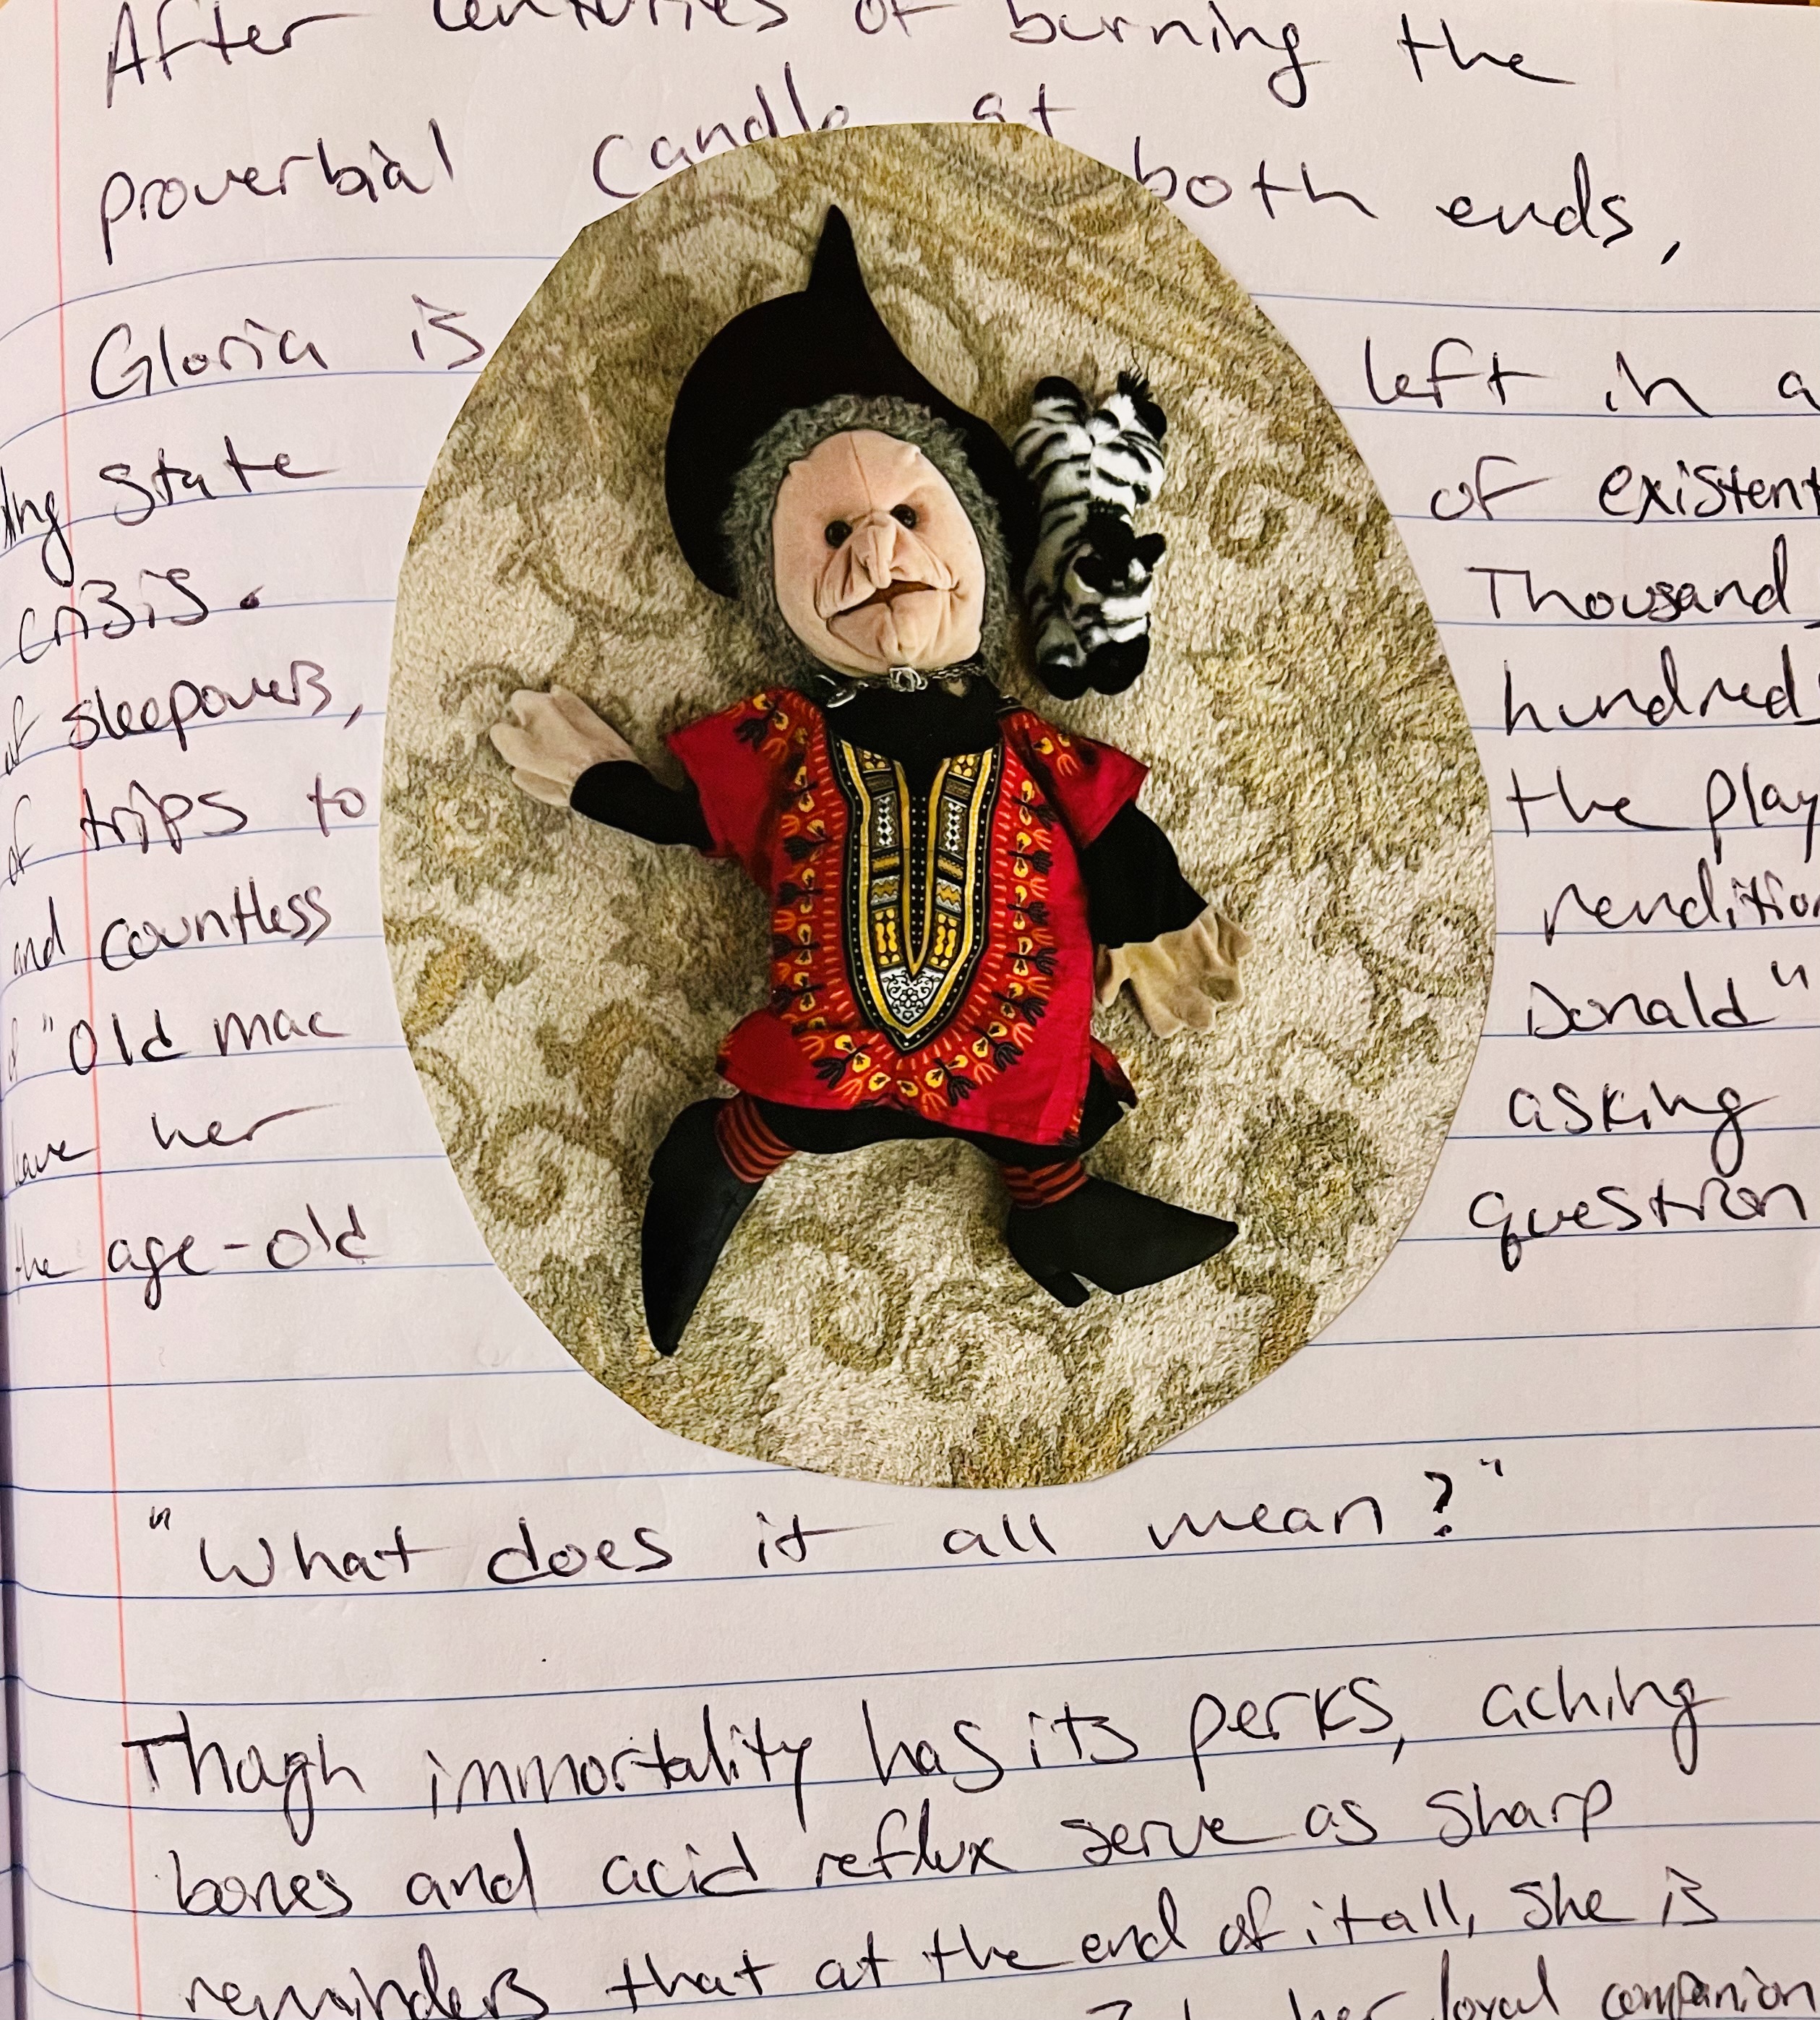 After centuries of burning the
proverbial Candle at both ends,
Gloria is left in a
state of existent
crisis. Thousand
of sleepovers, hundred
of trips to the play
and countless rendition
"Old mac Donald"
have her asking
the age-old question
"What does it all mean?"
Though immortality has its perks, aching
bones and acid reflux serve as sharp
reminders that at the end of it all, she is
her loyal companion